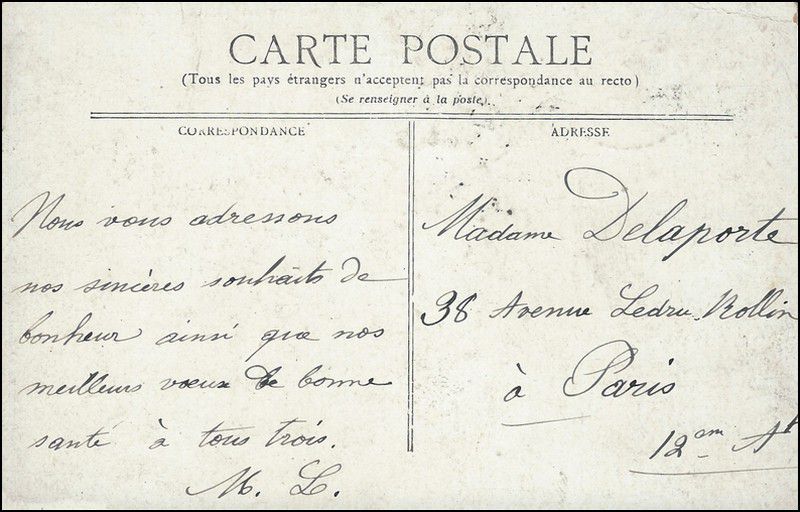 CARTE POSTALE
(Tous les pays étrangers n'acceptent pas la correspondance au recto)
(Se renseigner à la poste).
CORRESPONDANCE
Nous vous adressons
nos sincères souhaits de
bonheur ainsi que nos
meilleurs vœux de bonne
santé à tous trois.
M. L.
ADRESSE
Madame Delaporte
38 Avenue Ledru-Rollin
à Paris
12em At